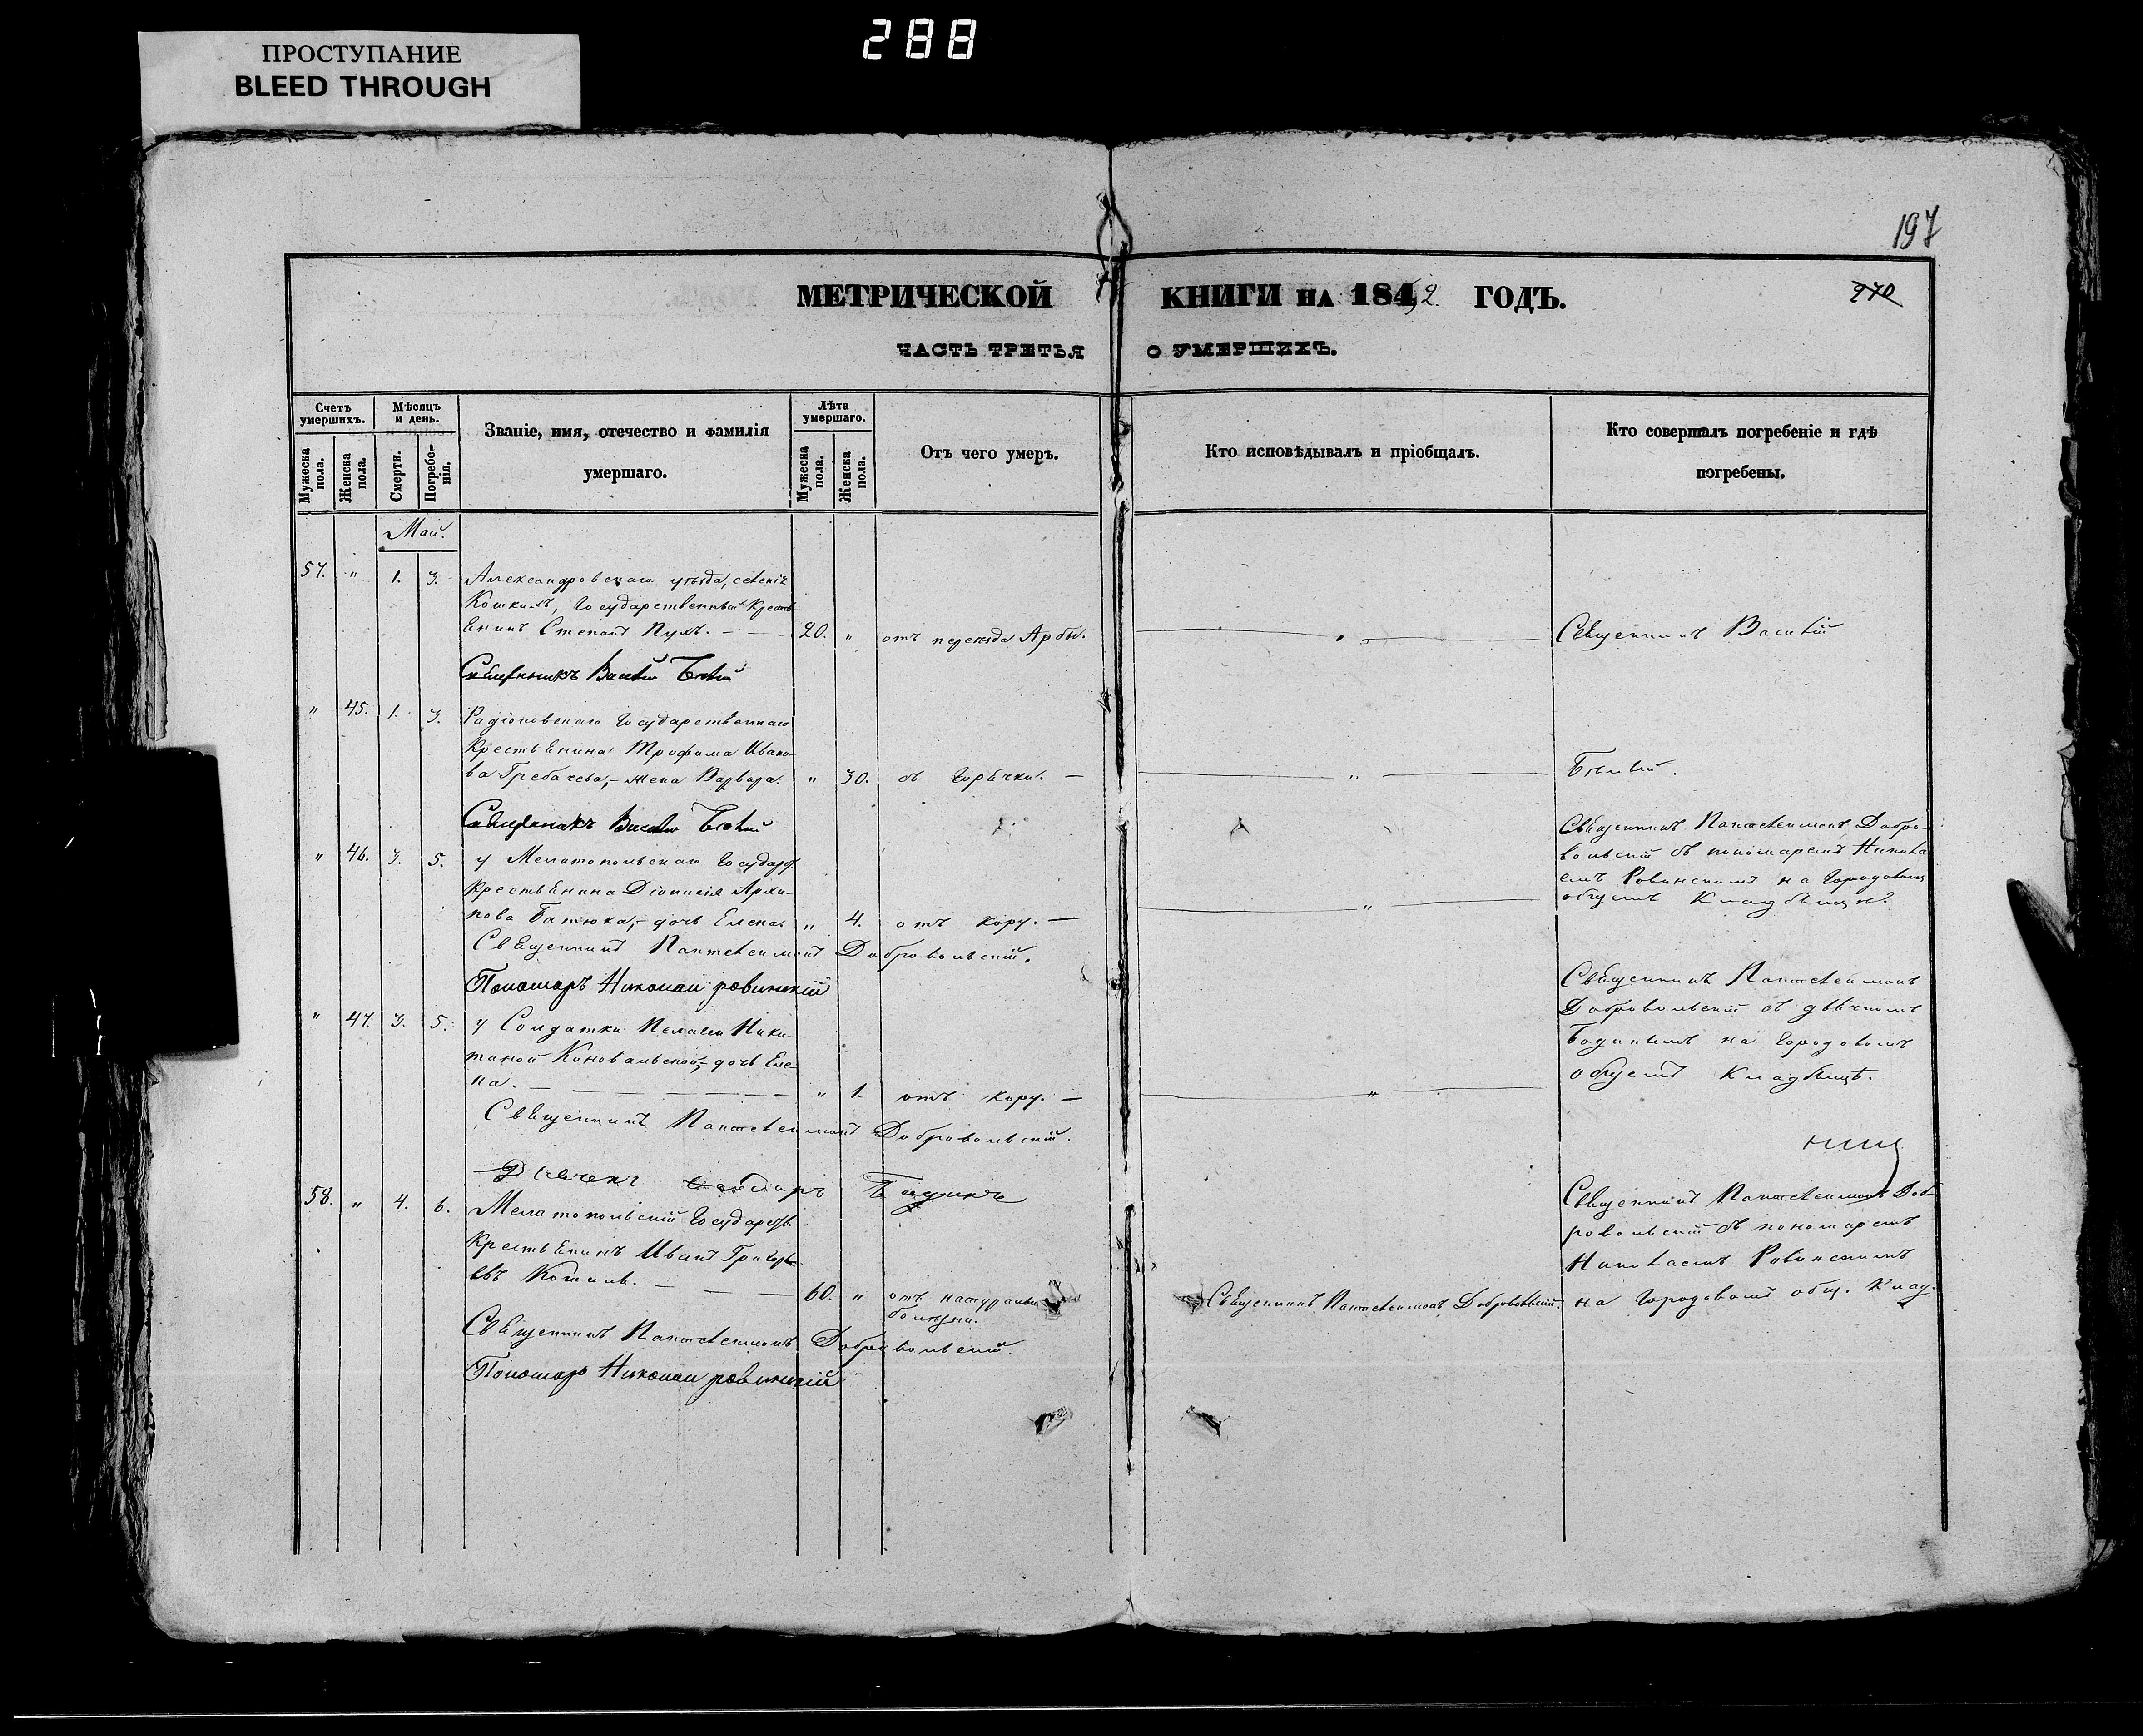 288
ПРОСТУПАНИЕ
BLEED THROUGH
197
970
МЕТРИЧЕСКОЙ КНИГИ НА 1842 ГОДЪ.
ЧАСТЬ ТРЕТЬЯ О УМЕРШИХЪ.
Счетъ умершихъ.
Мужеска пола.
Женска пола.
Мѣсяцъ и день.
Смерти.
Погребенія.
Званіе, имя, отечество и фамилія
умершаго.
Лѣта умершаго.
Мужеска пола.
Женска пола.
Отъ чего умеръ.
Кто исповѣдывалъ и пріобщалъ.
Кто совершалъ погребеніе и гдѣ
погребены.
Май.
57. " 1. 3. Александровскаго уѣзда, селенія
Государственный Крестья-
янинъ Степанъ 20. " отъ переѣзда Арбы. Священникъ Василій
Священникъ Василій Бѣлый
" 45. 1. 3. Радіоновскаго Государственнаго
Крестьянина Трофима Ивано-
ва Гребачева, жена Варвара. " 30. съ Горячки. " Бѣлый.
Священникъ Василій Бѣлый
" 46. 3. 5. у Мелитопольскаго Государств.
Крестьянина Діонисія Архи-
пова Батюка, дочь Елена " 4. отъ кору. "
Священникъ Пантелеимонъ Добро-
вольскій съ пономаремъ Никола-
емъ Ровинскимъ на Городовомъ
общемъ Кладбищѣ.
Священникъ Пантелеимонъ Добровольскій.
Пономарь Николай ровинскій
" 47. 3. 5. у Солдатки Пелагеи Ники-
тиной Коновальской, дочь Еле-
на. " 1. отъ кору. "
Священникъ Пантелеимонъ
Добровольскій съ дьячкомъ
на Городовомъ
общемъ Кладбищѣ.
Священникъ Пантелеимонъ Добровольскій.
Дьячекъ
58. " 4. 6. Мелитопольскій Государств.
Крестьянинъ Иванъ Григорь-
евъ 60. " отъ натуральн.
болѣзни. Священникъ Пантелеимонъ Добровольскій.
Священникъ Пантелеимонъ Доб-
ровольскій съ пономаремъ
Николаемъ Ровинскимъ
на Городовомъ общ. Клад.
Священникъ Пантелеимонъ Добровольскій.
Пономарь Николай ровинскій